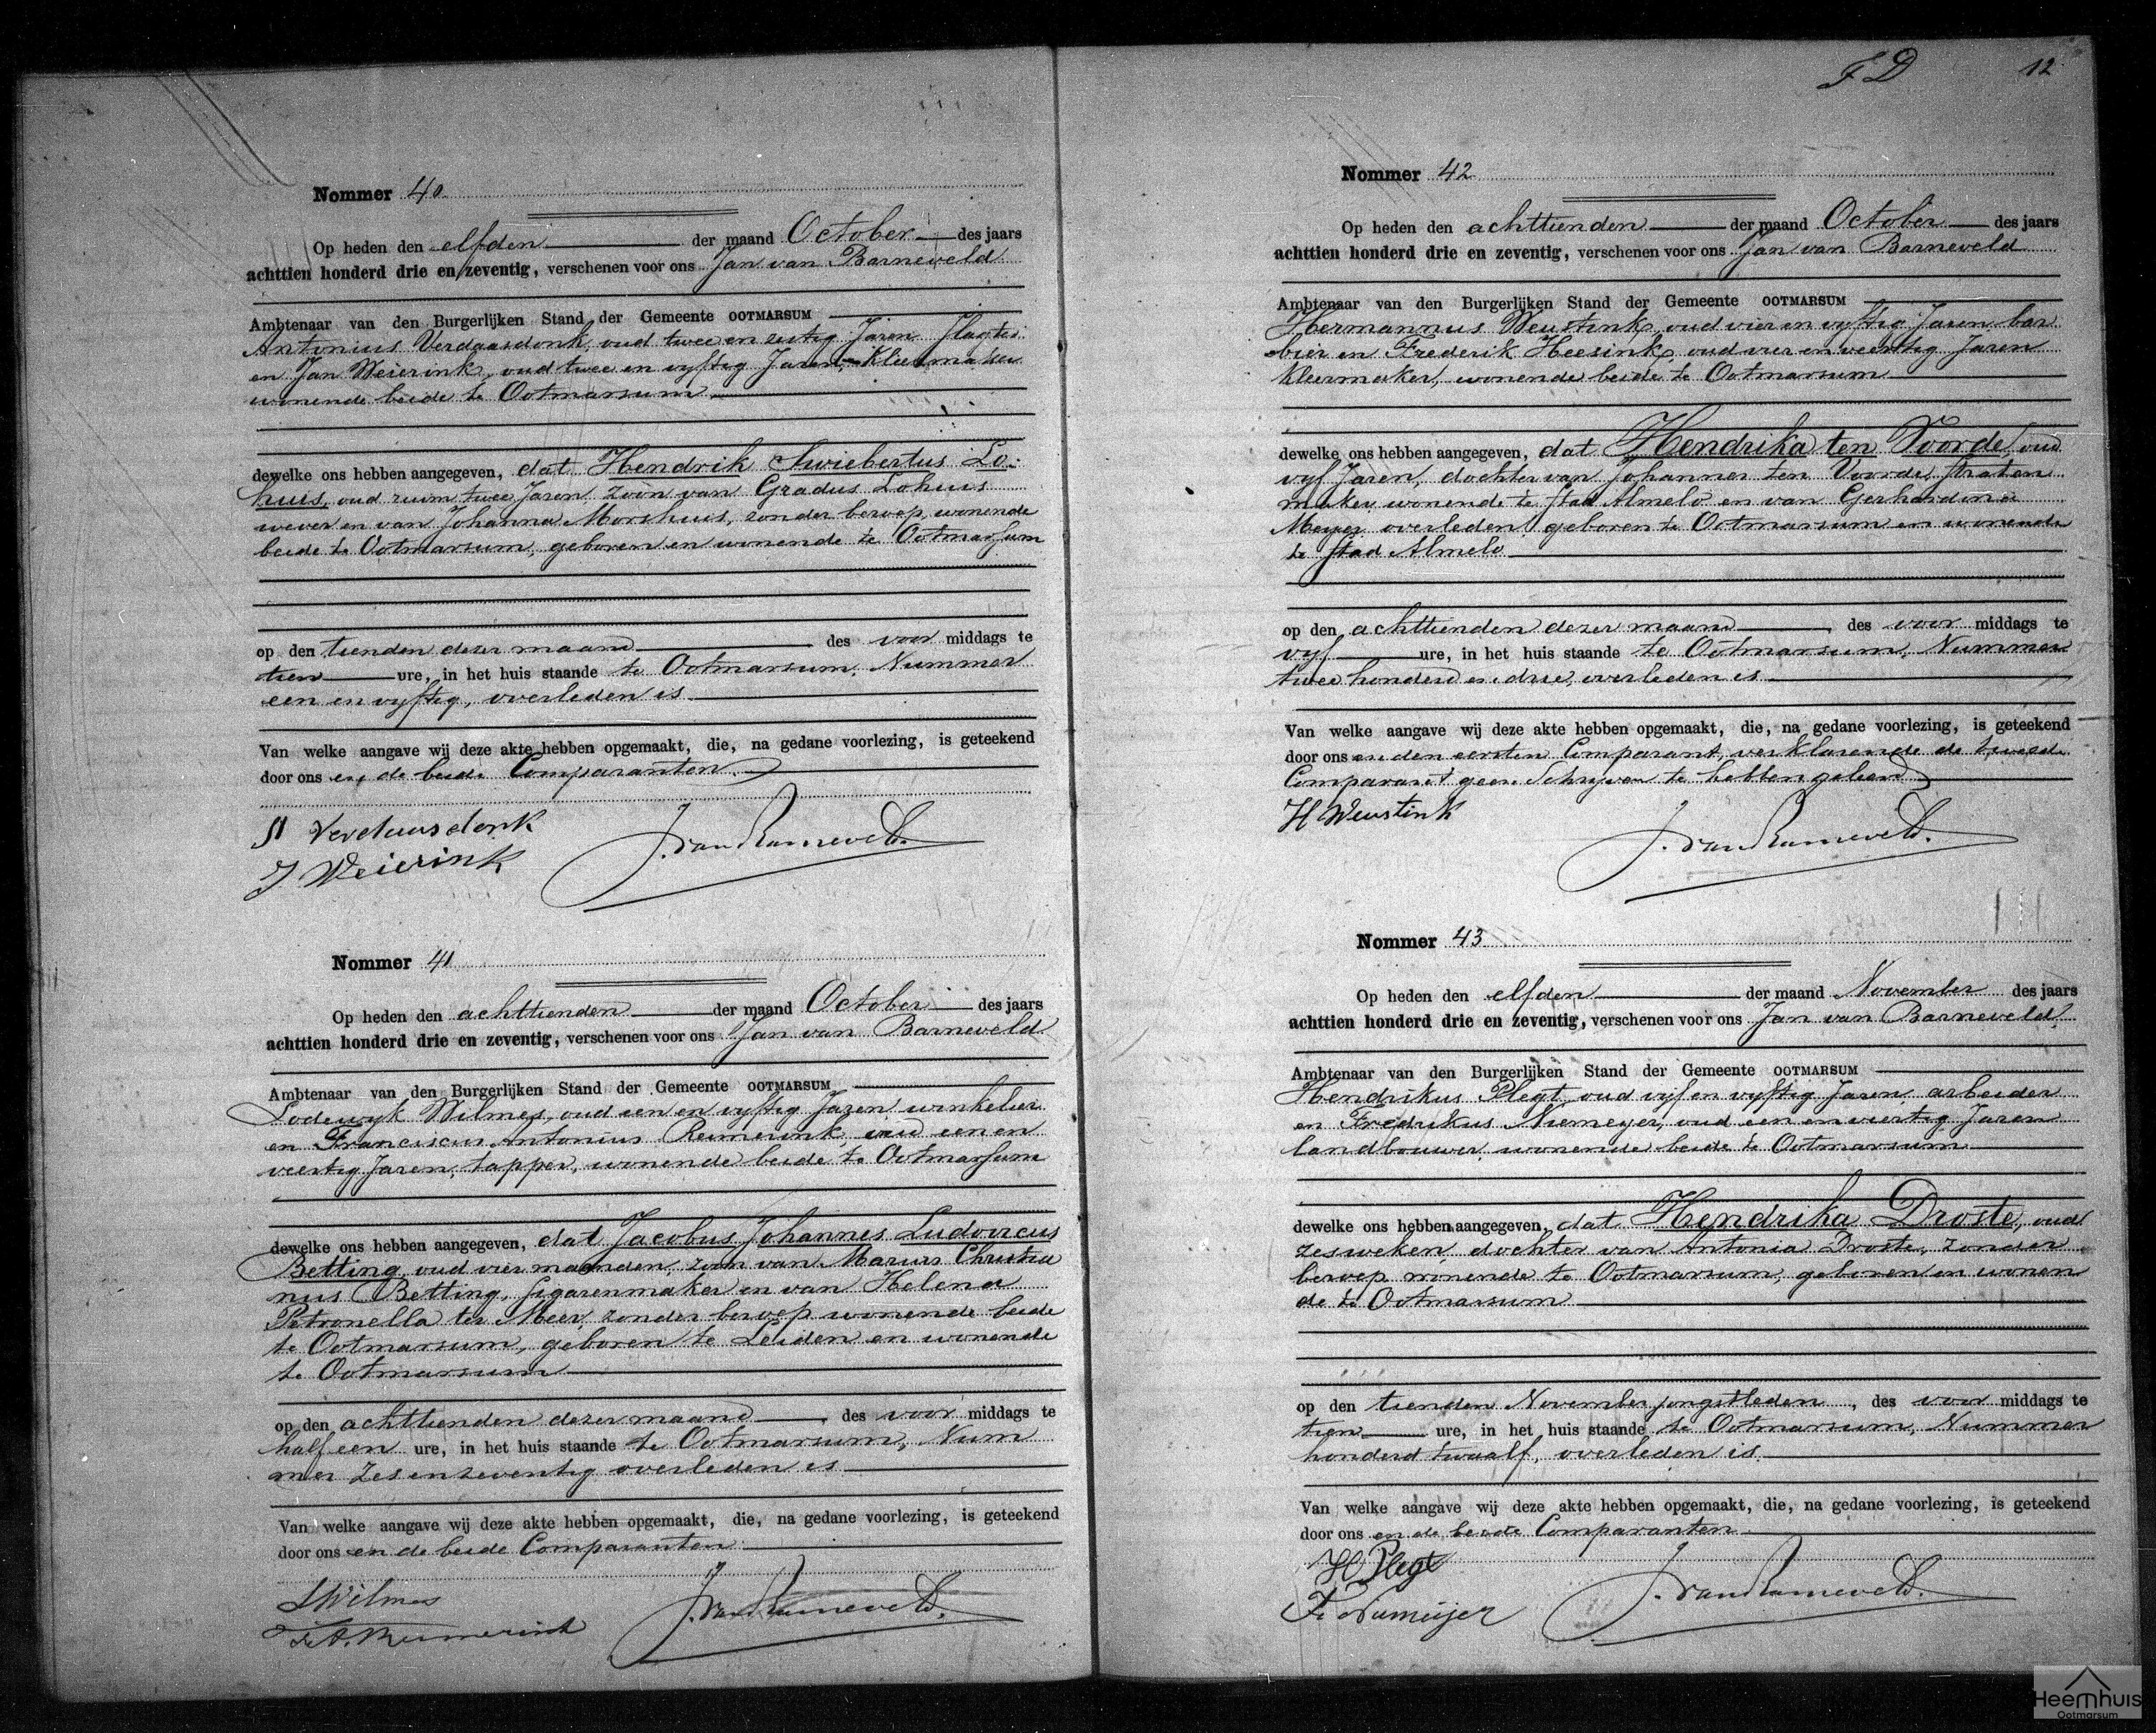 Nommer 40.
Op heden den elfden der maand October des jaars
achttien honderd drie en zeventig, verschenen voor ons Jan van Barneveld
Ambtenaar van den Burgerlijken Stand der Gemeente OOTMARSUM
Antonius Verdaasdonk, oud twee en zestig Jaren Slagter
en Jan Weierink, oud twee en vyftig Jaren, Kleermaker
wonende beide te Ootmarsum
dewelke ons hebben aangegeven, dat Hendrik Swiebertus Lo-
huis, oud ruim twee Jaren zoon van Gradus Lohuis
wever en van Johanna Morshuis, zonder beroep, wonende
beide te Ootmarsum, geboren en wonende te Ootmarsum
op den tienden dezer maand des voor middags te
tien ure, in het huis staande te Ootmarsum, Nummer
een en vyftig, overleden is
Van welke aangave wij deze akte hebben opgemaakt, die, na gedane voorlezing, is geteekend
door ons en de beide Comparanten.
A Verdaasdonk
J. Weierink
J. van Barneveld.
Nommer 41
Op heden den achttienden der maand October des jaars
achttien honderd drie en zeventig, verschenen voor ons Jan van Barneveld
Ambtenaar van den Burgerlijken Stand der Gemeente OOTMARSUM
Lodewyk Wilmes, oud een en vyftig Jaren winkelier
en Franciscus Antonius Reimerink, oud een en
veertig Jaren, tapper, wonende beide te Ootmarsum
dewelke ons hebben aangegeven, dat Jacobus Johannes Ludovicus
Betting, oud vier maanden, zoon van Marius Christia
nus Betting, sigarenmaker en van Helena
Petronella ter Meer, zonder beroep wonende beide
te Ootmarsum, geboren te Leiden en wonende
te Ootmarsum
op den achttienden dezer maand, des voor middags te
half een ure, in het huis staande te Ootmarsum, Num
mer zes en zeventig overleden is
Van welke aangave wij deze akte hebben opgemaakt, die, na gedane voorlezing, is geteekend
door ons en de beide Comparanten.
L Wilmes
F. A. Reimerink
J. van Barneveld.
F D 12
Nommer 42
Op heden den achttienden der maand October des jaars
achttien honderd drie en zeventig, verschenen voor ons Jan van Barneveld
Ambtenaar van den Burgerlijken Stand der Gemeente OOTMARSUM
Hermannus Weustink, oud vier en vyftig Jaren bar
bier en Frederik Heesink, oud vier en veertig Jaren
Kleermaker, wonende beide te Ootmarsum
dewelke ons hebben aangegeven, dat Hendrika ten Voorde, oud
vyf Jaren, dochter van Johannes ten Voorde, straten
maker wonende te stad Almelo en van Gerhardina
Meyer overleden, geboren te Ootmarsum en wonende
te stad Almelo
op den achttienden dezer maand, des voor middags te
vyf ure, in het huis staande te Ootmarsum, Nummer
twee honderd en drie, overleden is
Van welke aangave wij deze akte hebben opgemaakt, die, na gedane voorlezing, is geteekend
door ons en den eersten Comparant, verklarende de tweede
Comparant geen Schryven te hebben geleerd
H Weustink
J. van Barneveld.
Nommer 43
Op heden den elfden der maand November des jaars
achttien honderd drie en zeventig, verschenen voor ons Jan van Barneveld,
Ambtenaar van den Burgerlijken Stand der Gemeente OOTMARSUM
Hendrikus Plegt, oud vyf en vyftig Jaren, arbeider
en Fredrikus Niemeyer, oud een en veertig Jaren
landbouwer, wonende beide te Ootmarsum
dewelke ons hebben aangegeven, dat Hendrika Droste, oud
zes weken, dochter van Antonia Droste, zonder
beroep wonende te Ootmarsum, geboren en wonen
de te Ootmarsum
op den tienden November jongstleden, des voor middags te
tien ure, in het huis staande te Ootmarsum, Nummer
honderd twaalf, overleden is
Van welke aangave wij deze akte hebben opgemaakt, die, na gedane voorlezing, is geteekend
door ons en de beide Comparanten
H Plegt
F. Niemeijer
J. van Barneveld.
Heemhuis
Ootmarsum